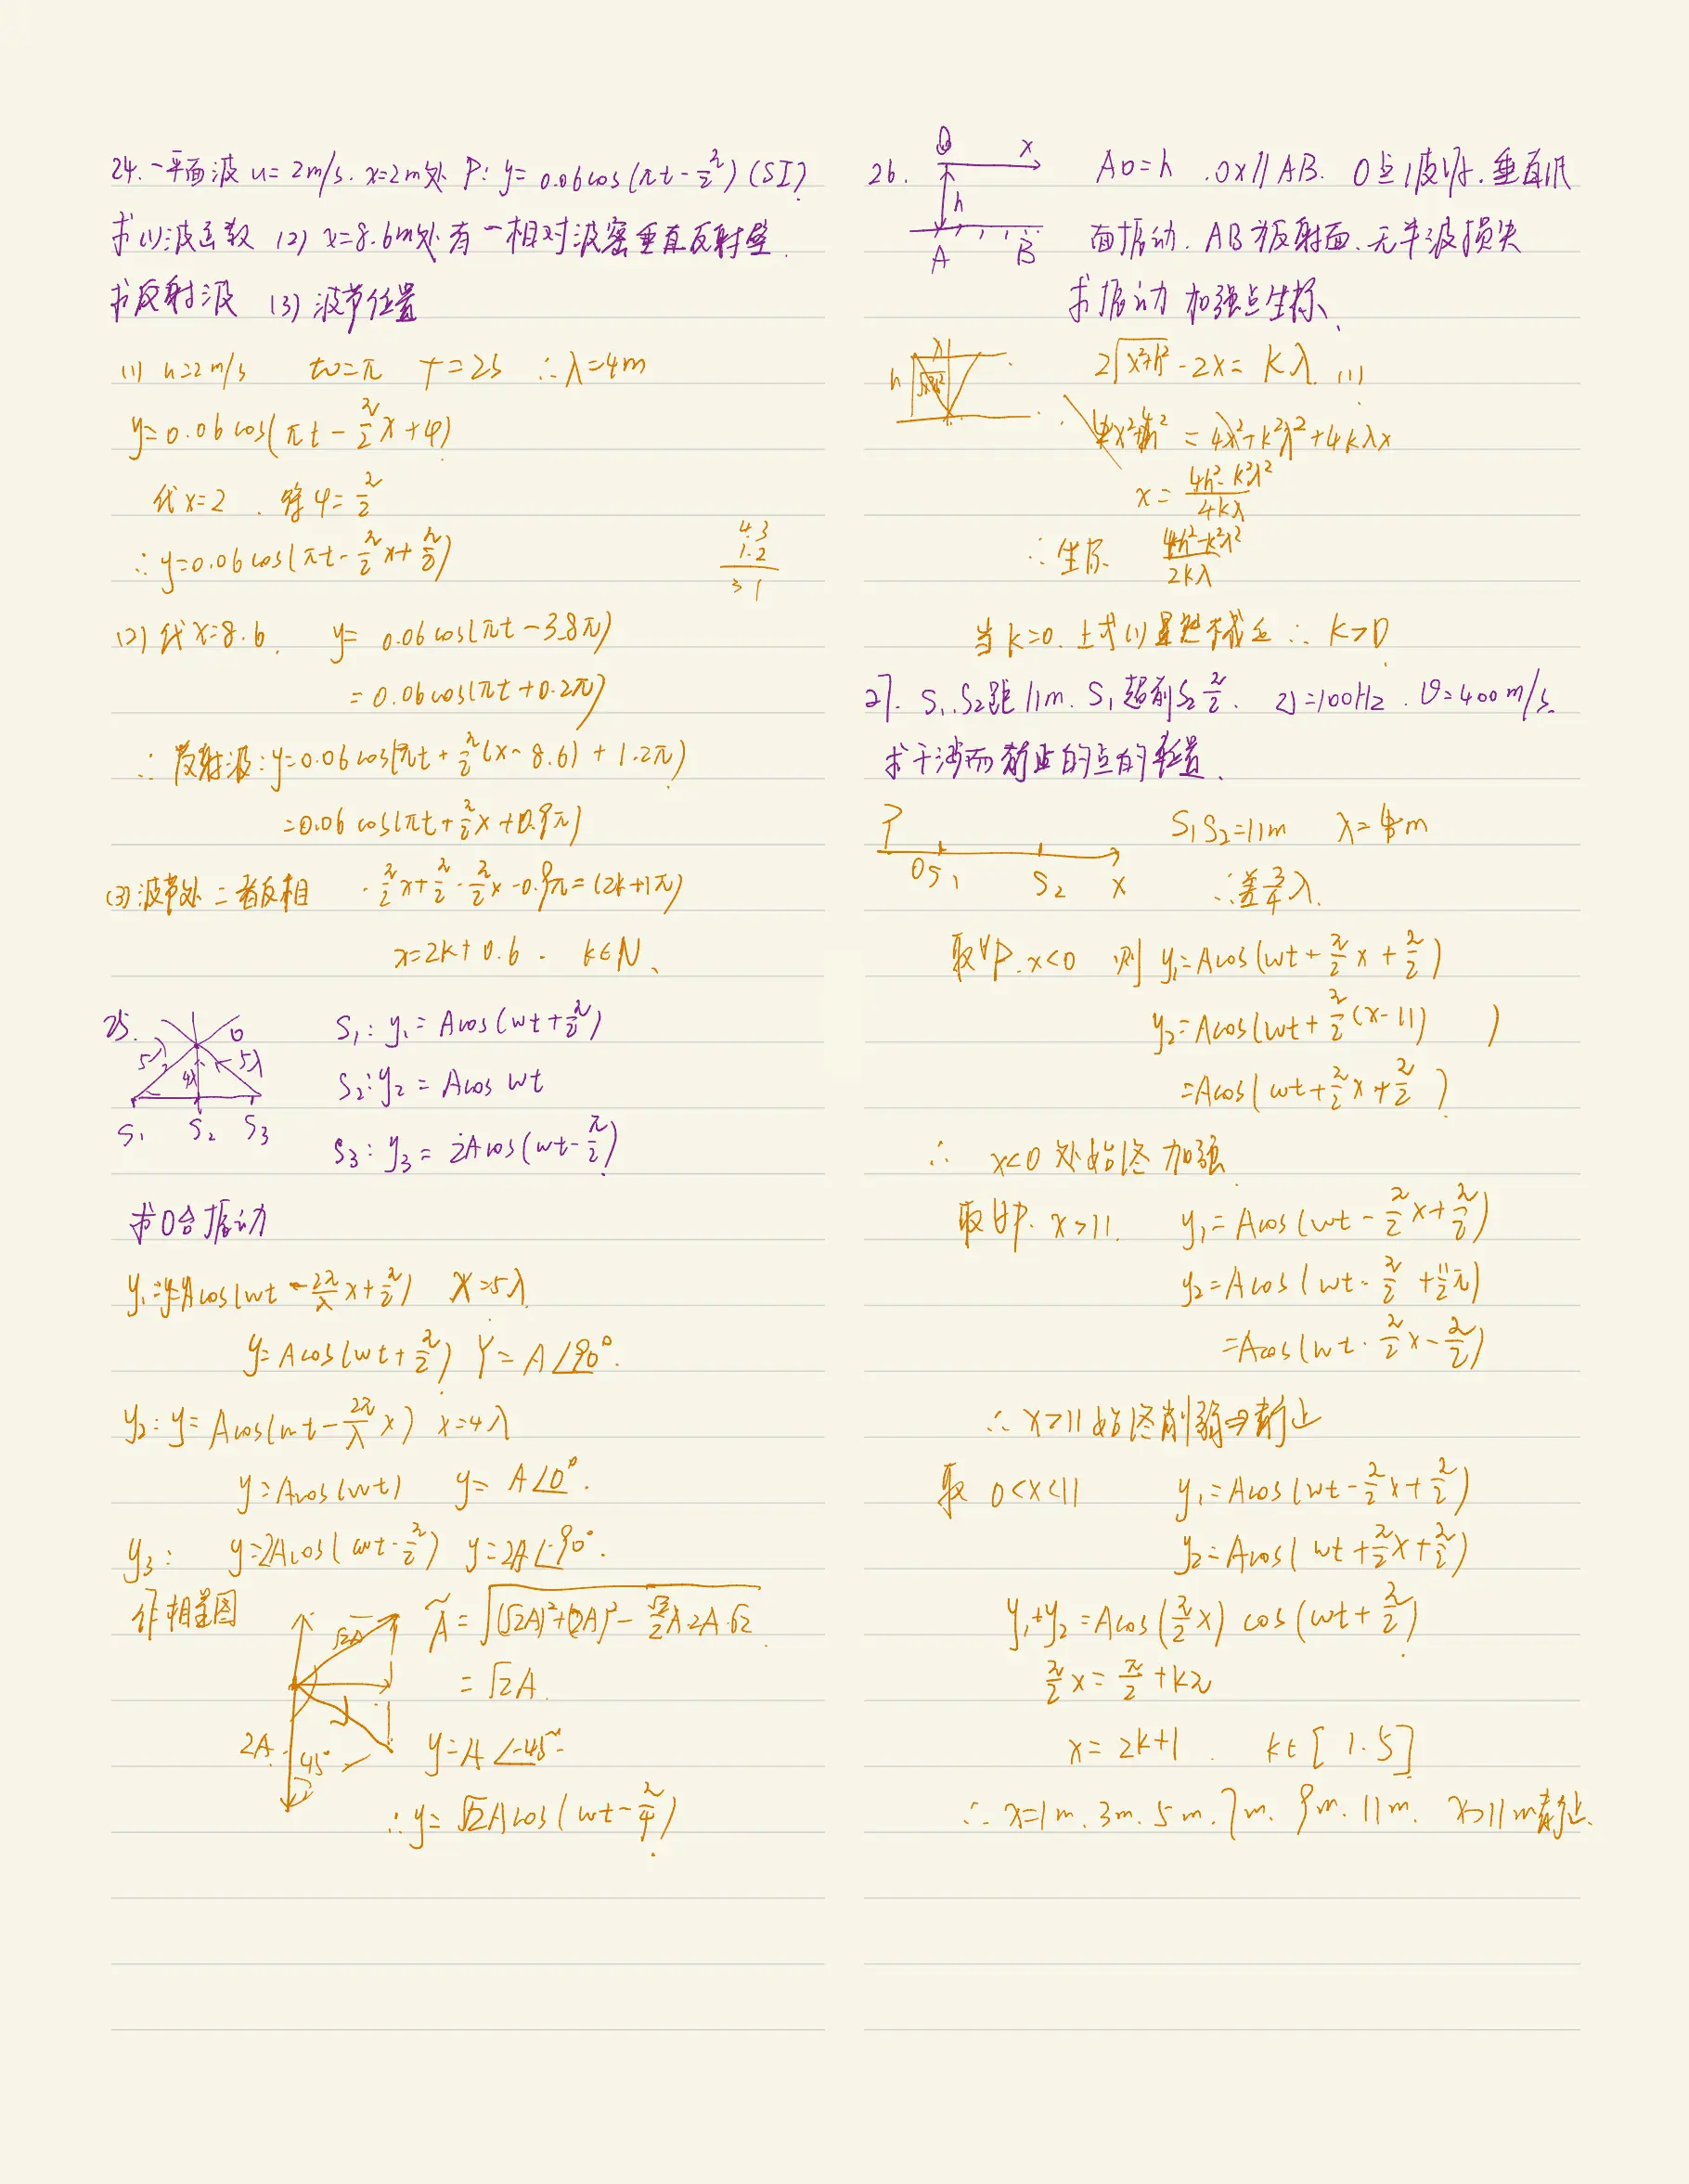 24. 一平面波 u=2m/s. x=2m处 P: y=0.06cos(πt-π/2)(SI)
求(1)波函数 (2) x=8.6m处有一相对波密垂直反射壁.
求反射波 (3)波节位置
(1) u=2m/s ω=π T=2s ∴λ=4m
y=0.06cos(πt-π/2x+φ)
代x=2. 得φ=π/2
∴y=0.06cos(πt-π/2x+π/2)
4.3
1.2
3 1
(2)代x=8.6. y=0.06cos(πt-3.8π)
=0.06cos(πt+0.2π)
∴反射波:y=0.06cos(πt+π/2(x-8.6)+1.2π)
=0.06cos(πt+π/2x+0.9π)
(3)波节处二者反相 -π/2x+π/2-π/2x-0.9π=(2k+1π)
x=2k+0.6. k∈N.
25.
O
5λ 4λ 5λ
S1 S2 S3
S1: y1=Acos(ωt+π/2)
S2: y2=Acos ωt
S3: y3=2Acos(ωt-π/2)
求O合振动
y1:y=Acos(ωt-2π/λx+π/2) x=5λ
y=Acos(ωt+π/2) Y=A∠90°.
y2:y=Acos(ωt-2π/λx) x=4λ
y=Acos(ωt) y=A∠0°.
y3: y=2Acos(ωt-π/2) y=2A∠-90°.
作相量图
√2A
2A 45°
Ã=√((√2A)²+(2A)²-√2/2A·2A·√2)
=√2A.
y=A∠-45°
∴y=√2Acos(ωt-π/4).
26. O x
h
A B
AO=h. Ox∥AB. O点波源.垂直纸
面振动. AB为反射面.无半波损失
求振动加强点坐标.
h
2√(x²+h²)-2x=kλ.(1)
4x²+4h²=4x²+k²λ²+4kλx
x=(4h²-k²λ²)/4kλ
∴坐标 (4h²-k²λ²)/2kλ
当k=0.上式(1)显然不成立∴k>0
27. S1.S2距11m. S1超前S2 π/2. ν=100Hz. v=400m/s.
求干涉而静止的点的位置.
P
OS1 S2 x
S1S2=11m λ=4m
∴差3/4λ.
取∀P.x<0 则 y1=Acos(ωt+π/2x+π/2)
y2=Acos(ωt+π/2(x-11) )
=Acos(ωt+π/2x+π/2)
∴ x<0处始终加强
取∀P. x>11. y1=Acos(ωt-π/2x+π/2)
y2=Acos(ωt-π/2+11/2π)
=Acos(ωt-π/2x-π/2)
∴x>11始终削弱⇒静止
取 0<x<11 y1=Acos(ωt-π/2x+π/2)
y2=Acos(ωt+π/2x+π/2)
y1+y2=Acos(π/2x) cos(ωt+π/2).
π/2x=π/2+kπ
x=2k+1. k∈[1.5]
∴ x=1m. 3m. 5m. 7m. 9m. 11m. x>11m静止.